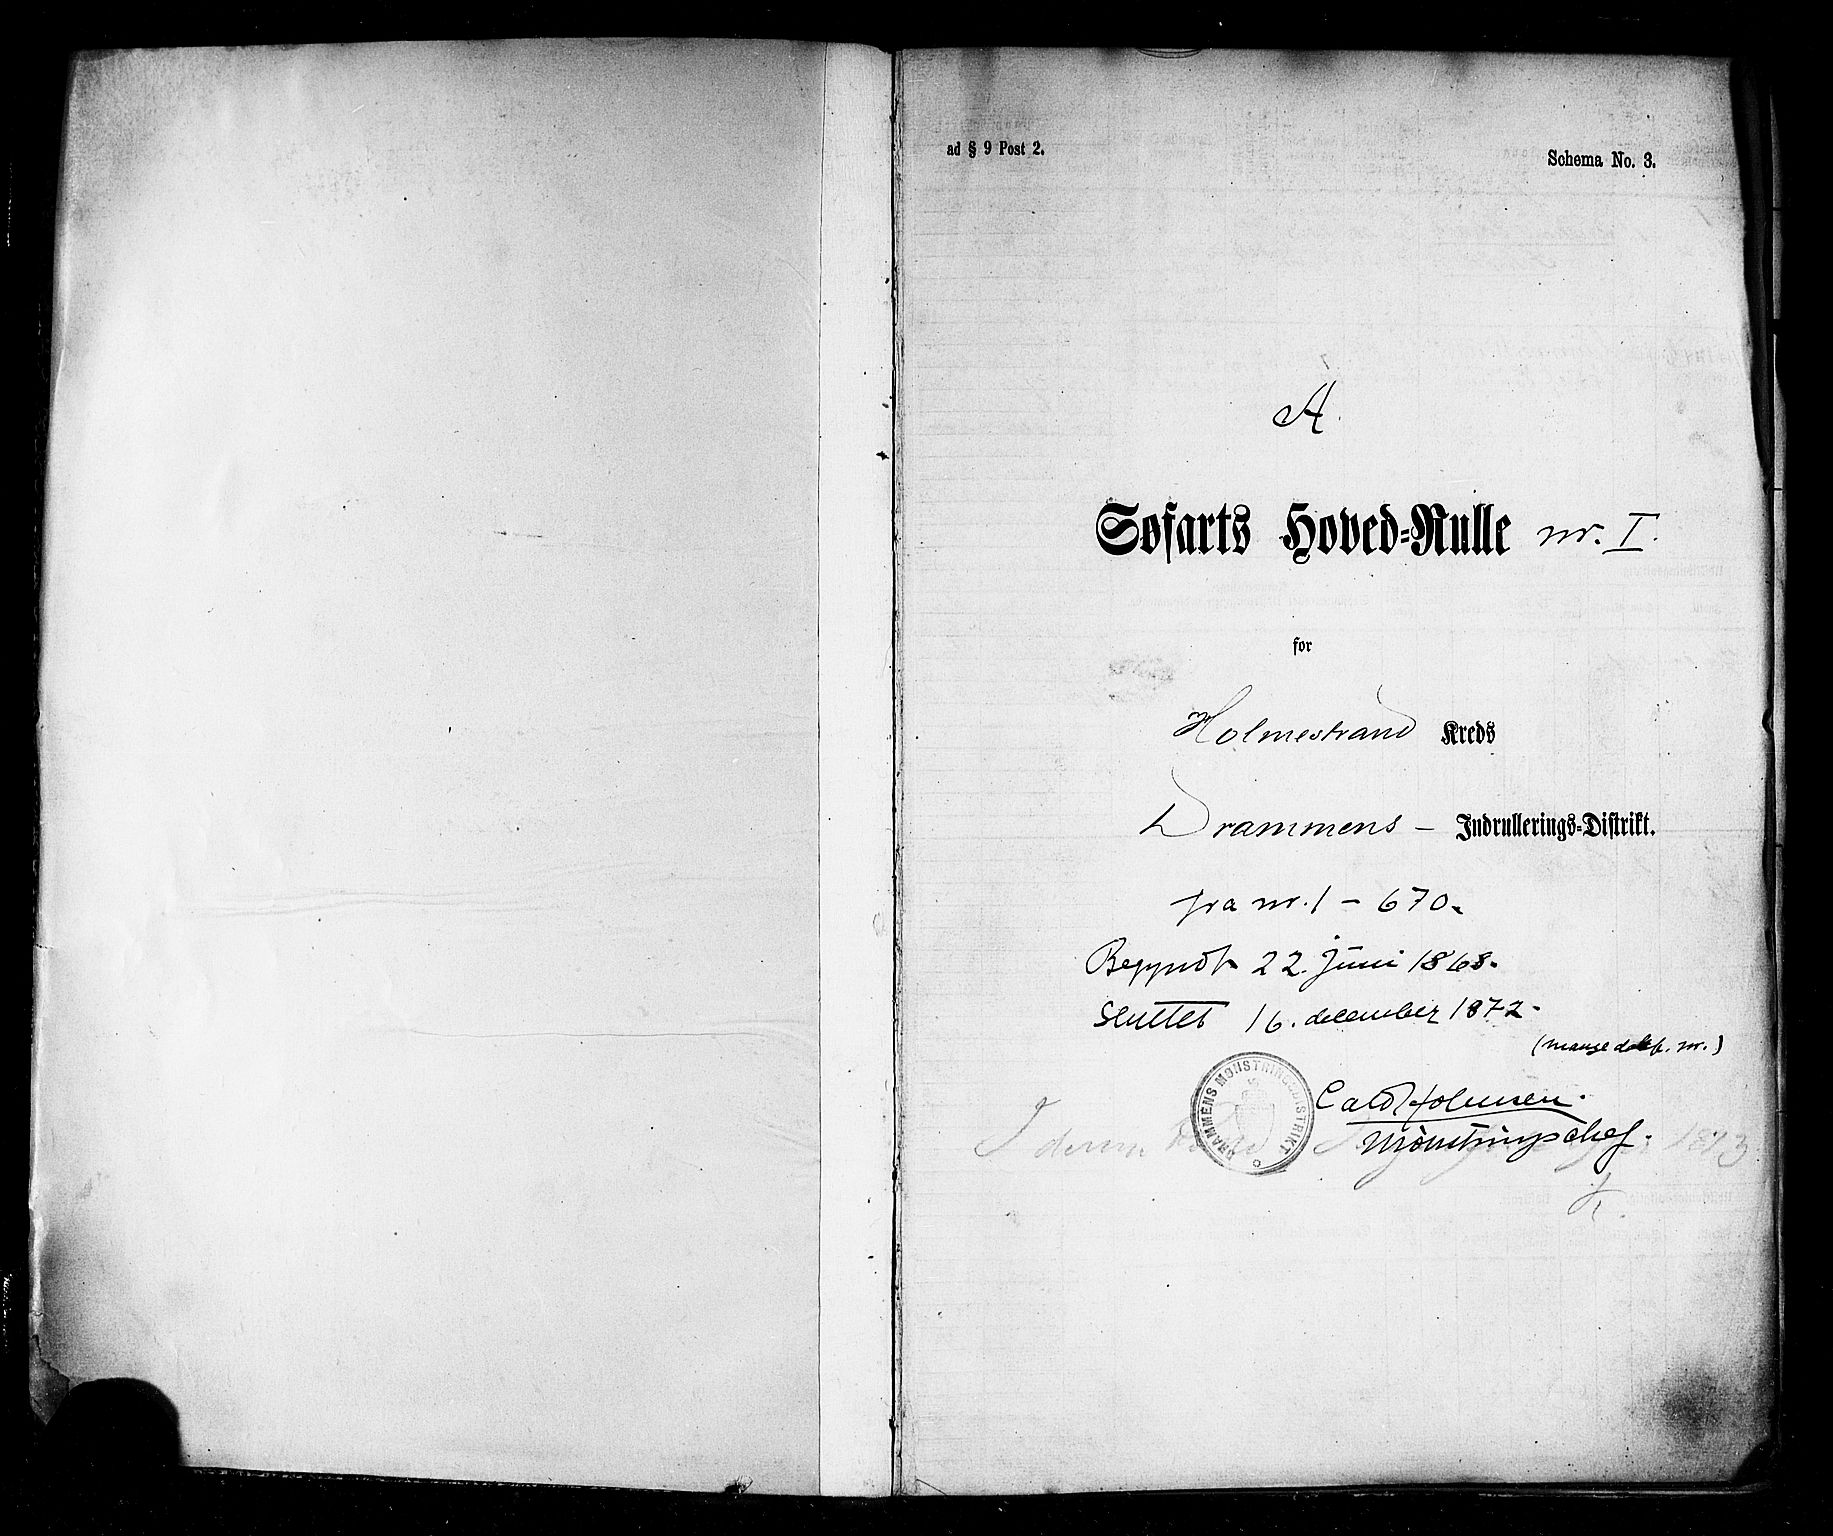 ad § 9 Post 2.
Schema No. 3.
A.
Søfarts Hoved-Rulle nr. I.
for
Holmestrand Kreds
Drammens - Indrullerings-Distrikt.
fra nr. 1 - 670.
Begyndt 22. juni 1868.
Sluttet 16. december 1872.
(mange dobb. nr.)
DRAMMENS MØNSTRINGSDISTRIKT
Mønstringschef.
I denne 1873